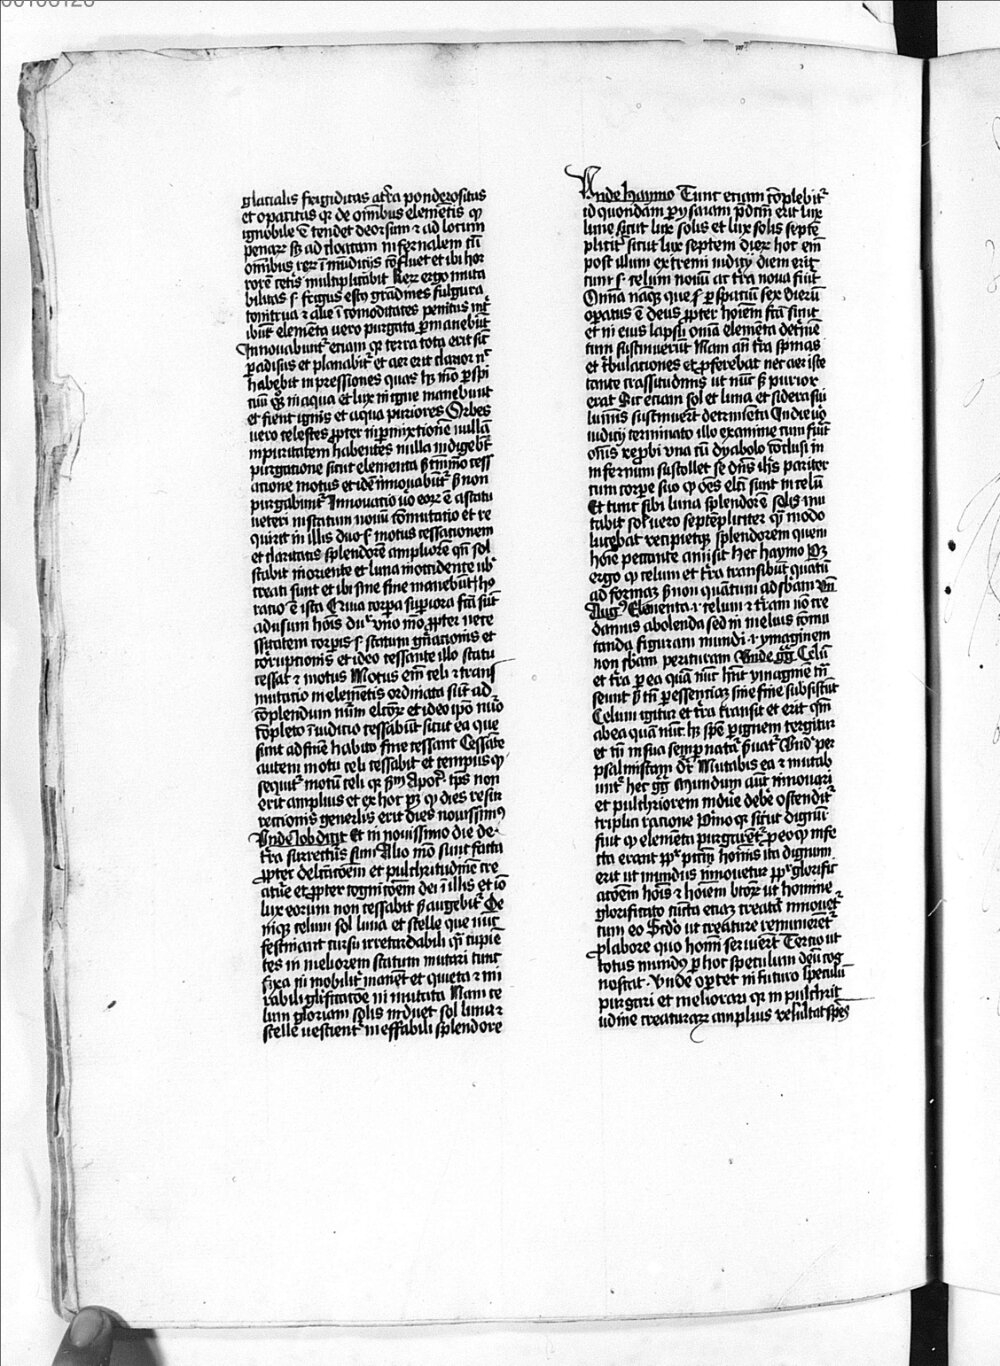 glacialis frigiditas atra ponderositas
et opacitas qr de omībus elemētis qͥ
ignobile ē tendet deorsum ⁊ ad locum
penaꝝ sꝫ ad cloacam infernalem cū
omībus reꝝ īmūdicijs cōfluet et ibi hor
rorē cetīs multiplicabit Reꝝ ergo muta
bilitas s. frigus estꝰ grādines fulgura
tonitrua ⁊ alie īcomoditates penitus int̾
ibūt elementa vero purgata ꝑmanebūt
Innouabunt̾ etiam qr terra tota erit sic̄
ꝑadisus et planabit̾ et aer erit clarior nᶜ
habebit inpressiones quas hꝫ mō ꝑspi
cuū qꝫ in aqua et lux in igne manebunt
et fient ignis et aqua puriores Orbes
vero celestes ꝓpter inꝑmixtionē nullā
inpuritatem habentes nulla indigebt̄
purgatione sicut elementa s̄ tm̄mō cess
atione motus et idē innouabūt̾ s̄ non
purgabunt̾ Innouatio uō eoꝝ ē a statu
veteri in statum nouū cōmutatio et re
quirit in illis duo s. motus cessationem
et claritatis splendorē ampliorē qn̄ sol
stabit in oriente et luna in occidente ubi
creati sunt et ibi sine fine manebūt hꝰ
ratio ē ista Cūcta corꝑa superiora fc̄a sūt
ad usum hōis dū vno mō ꝓpter nece
ssitatem corꝑis s. statum gn̄acionis et
corrupcionis et ideo cessante illo statu
cessat ⁊ motus Motus em̄ celi ⁊ trans
mutatio in elemētis ordinata sūt ad
cōplendum nūm elcōꝝ et ideo ip̄o nūō
cōpleto ī iudicio cessabūt sicut ea que
sunt ad finē habito fine cessant Cessāte
autem motu celi cessabit et tempus qͥ
sequit̾ motū celi qr sm̄ Apoc̄. tp̄s non
erit amplius et ex hoc pꝫ ꝙ dies resur
rectionis gen̄lis erit dies nouissimꝰ
Vnde Iob dicit Et in nouissimo die de
t̄ra surrecturꝰ sum Alio mō sunt facta
ꝓpter delc̄atōem et pulchritudinē cre
ature et ꝓpter cognitōem dei ī illis et iō
lux eorum non cessabit s̄ augebit̾ De
niqꝫ celum sol luna et stelle que nūc
festinant cursu irretardabili qͣi cupie
tes in meliorem statum mutari tunc
fixa ⁊ in mobilit̾ manēt et quieta ⁊ mi
rabili glificatōe in mutata Nam ce
lum gloriam solis induet sol luna ⁊
stelle vestient̾ ineffabili splendore
Vnde haymo Tunc etiam cōplebit̾
id quondam ꝑ ysaiam p̄dc̄m erit lux
lune sicut lux solis et lux solis septē
plicit̾ sicut lux septem dieꝝ hoc em̄
post illum extremi iudicij diem erit
cum s. celum nouū ac t̄ra noua fiūt
Om̄ia naꝫqꝫ que s. ꝑ spatiū sex dierū
oꝑatus ē deus ꝓpter hoīem fc̄a sūnt
et in eius lapsū om̄ia elementa detͥmē
tum sustinuerūt Nam an̄ t̄ra spinas
et tͥbulationes et ꝓferebat nec aer iste
tante crassitudinis ut nūc s̄ purior
erat Sic etiam sol et luna et sidera sui
luminis sustinuerūt detrimēta In die uō
iudicij terminato illo examine cum fūīt
om̄s reprobi vna cū dyabolo cōclusi in
infernum sustollet se dn̄s ih̄s pariter
cum corpe suo ꝙ oēs elc̄i sunt in celū
Et tunc sibi luna splendorē solis mu
tabit sol vero septēpliciter qͣm modo
lucebat recipietqꝫ splendorem quem
hoīe peccante amisit Hec haymo Pꝫ
ergo ꝙ celum et t̄ra transibūt quātū
ad formaꝫ s̄ non quātum ad sb̄am Vn̄
Augꝰ Elementa .i. celum ⁊ t̄ram nō cre
damus abolenda sed in melius cōmu
tanda figuram mundi .i. ymaginem
non sb̄am perituram Vnde gg̾ Celū
et t̄ra ꝑ ea quā nūc hn̄t ymaginē tn̄
seunt s̄ tn̄ ꝑ essentiaꝫ sine fine subsistūt
Celum igitur et t̄ra transit et erit qm̄
ab ea quā nūc hꝫ spē ꝑ ignem tergitur
et tn̄ in sua semꝑ natͣ s̄uat̾ Vnd̾ per
psalmistam dr̄ Mutabis ea ⁊ mutab
unt̾ hec gg̾ Mundum aūt innouari
et pulchriorem induē debē ostendit̾
triplici racione Primo qr sicut dignū
fuit ꝙ elemēta purgarēt̾ ꝑ eo ꝙ infe
cta erant ꝓpt̾ pctm̄ hominis ita dignum
erit ut mundus innouetur ꝓpt̾ glorific
atōem hōis ⁊ hoīem btoꝝ ut homine
glorificato cūcta etiaꝫ creatͣ innouet̾
cum eo Scd̾o ut creature remunerēt̾
ꝓ labore quo homī seruiert̄ Tercio ut
totus mundꝰ ꝑ hoc speculum deū cog
noscat. Vnde oꝑtet in futuro speculū
purgari et meliorari qr in pulchrit
udine creaturaꝝ amplius resultat spēs